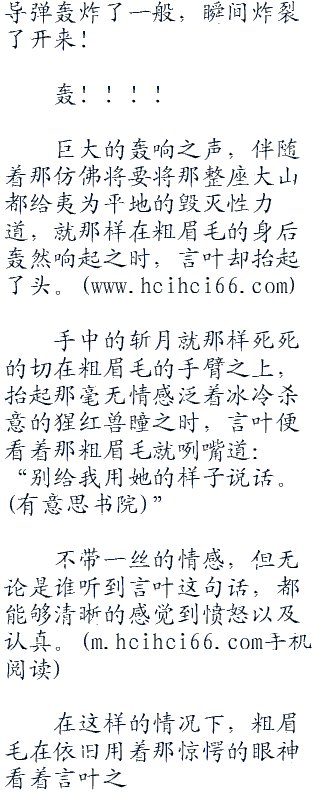 导弹轰炸了一般，瞬间炸裂
了开来！
轰！！！！
巨大的轰响之声，伴随
着那仿佛将要将那整座大山
都给夷为平地的毁灭性力
道，就那样在粗眉毛的身后
轰然响起之时，言叶却抬起
了头。(www.hcihci66.com)
手中的斩月就那样死死
的切在粗眉毛的手臂之上，
抬起那毫无情感泛着冰冷杀
意的猩红兽瞳之时，言叶便
看着那粗眉毛就咧嘴道：
“别给我用她的样子说话。
(有意思书院)”
不带一丝的情感，但无
论是谁听到言叶这句话，都
能够清晰的感觉到愤怒以及
认真。(m.hcihci66.com手机
阅读)
在这样的情况下，粗眉
毛在依旧用着那惊愕的眼神
看着言叶之